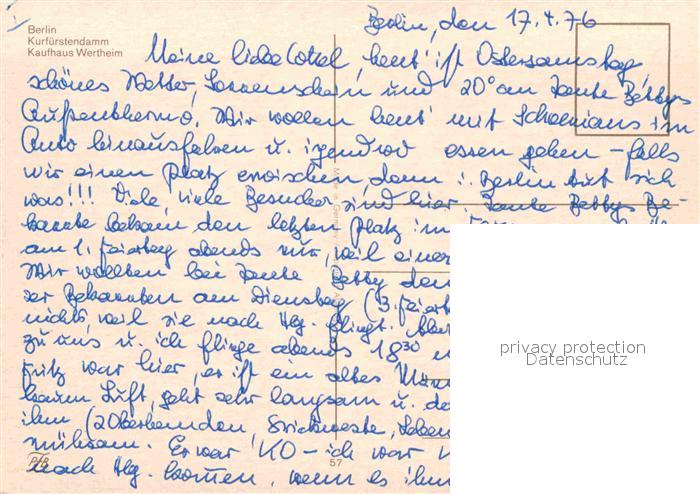 Berlin
Kurfürstendamm
Kaufhaus Wertheim
Berlin, den 17.4.76
Meine liebe heut' ist Ostersamstag,
schönes Wetter, Sonnenschein und 20° am Tante Bettys
Außenthermo. Wir wollen heut' mit im
Auto hinausfahren u. irgendwo essen gehen – falls
wir einen Platz erwischen, denn i. Berlin tut sich
was!!! Viele, viele Besucher sind hier. Tante Bettys Be-
kannte bekam den letzten Platz im
am 1. Feiertag abends nur, weil einer
Wir wollten bei Tante Betty den
ser Bekannten am Dienstag (3. Feiert
nichts, weil sie nach Hbg. fliegt. Aber
zu uns u. ich fliege abends 18³⁰
Fritz war hier, er ist ein altes
kaum Luft, geht sehr langsam u. de
ihm (2 Oberhemden, Strickweste,
mühsam. Er war KO – ich war
nach Hbg. kommen, wenn es ihm
57
privacy protection
Datenschutz